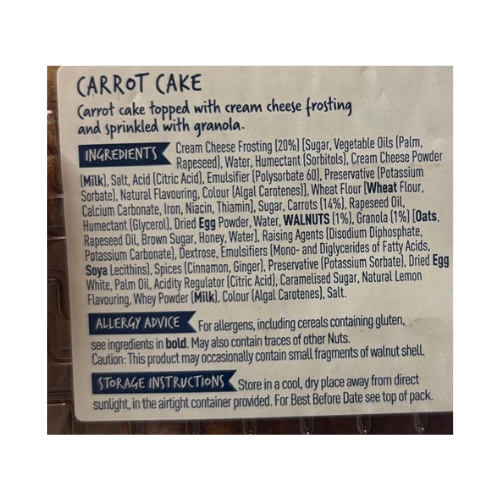 CARROT CAKE
Carrot cake topped with cream cheese frosting
and sprinkled with granola.
INGREDIENTS Cream Cheese Frosting (20%) [Sugar, Vegetable Oils (Palm,
Rapeseed), Water, Humectant (Sorbitols), Cream Cheese Powder
(Milk), Salt, Acid (Citric Acid), Emulsifier (Polysorbate 60), Preservative (Potassium
Sorbate), Natural Flavouring, Colour (Algal Carotenes)], Wheat Flour [Wheat Flour,
Calcium Carbonate, Iron, Niacin, Thiamin], Sugar, Carrots (14%), Rapeseed Oil,
Humectant (Glycerol), Dried Egg Powder, Water, WALNUTS (1%), Granola (1%) [Oats,
Rapeseed Oil, Brown Sugar, Honey, Water], Raising Agents (Disodium Diphosphate,
Potassium Carbonate), Dextrose, Emulsifiers (Mono- and Diglycerides of Fatty Acids,
Soya Lecithins), Spices (Cinnamon, Ginger), Preservative (Potassium Sorbate), Dried Egg
White, Palm Oil, Acidity Regulator (Citric Acid), Caramelised Sugar, Natural Lemon
Flavouring, Whey Powder (Milk), Colour (Algal Carotenes), Salt.
ALLERGY ADVICE For allergens, including cereals containing gluten,
see ingredients in bold. May also contain traces of other Nuts.
Caution: This product may occasionally contain small fragments of walnut shell.
STORAGE INSTRUCTIONS Store in a cool, dry place away from direct
sunlight, in the airtight container provided. For Best Before Date see top of pack.